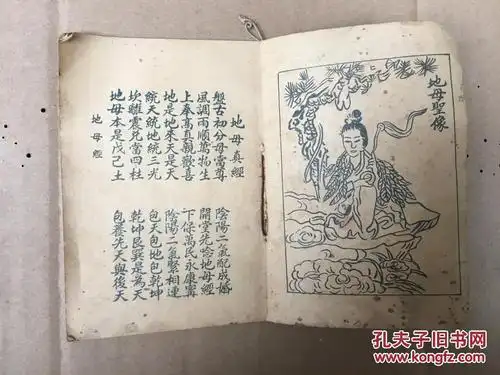 地母聖像
地母真經
盤古初分母當尊 陰陽二氣配成婚
風調雨順萬物生 開堂先唸地母經
上奉高真歡喜 下保萬民永康甯
地是地來天是天 陰陽二氣緊相連
統天統地統三光 包天包地包乾坤
坎離震兌當四柱 乾坤艮巽是為天
地母本是戊己土 包養先天與後天
地母經
孔夫子旧书网
www.kongfz.com